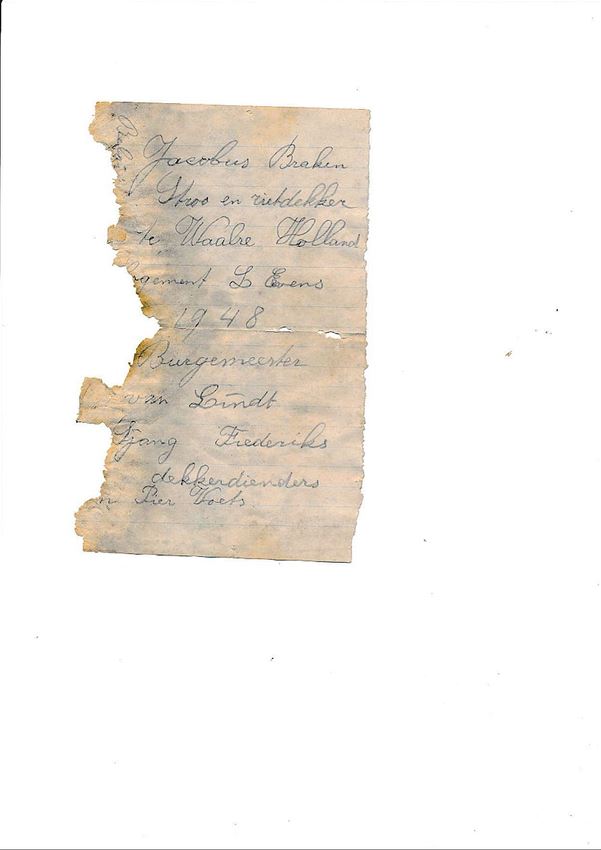 Jacobus Braken
Stroo en rietdekker
te Waalre Holland
gement L Evens
1948
Burgemeester
van Lindt
Sjang Frederiks
dekkerdienders
n Pier Voets.